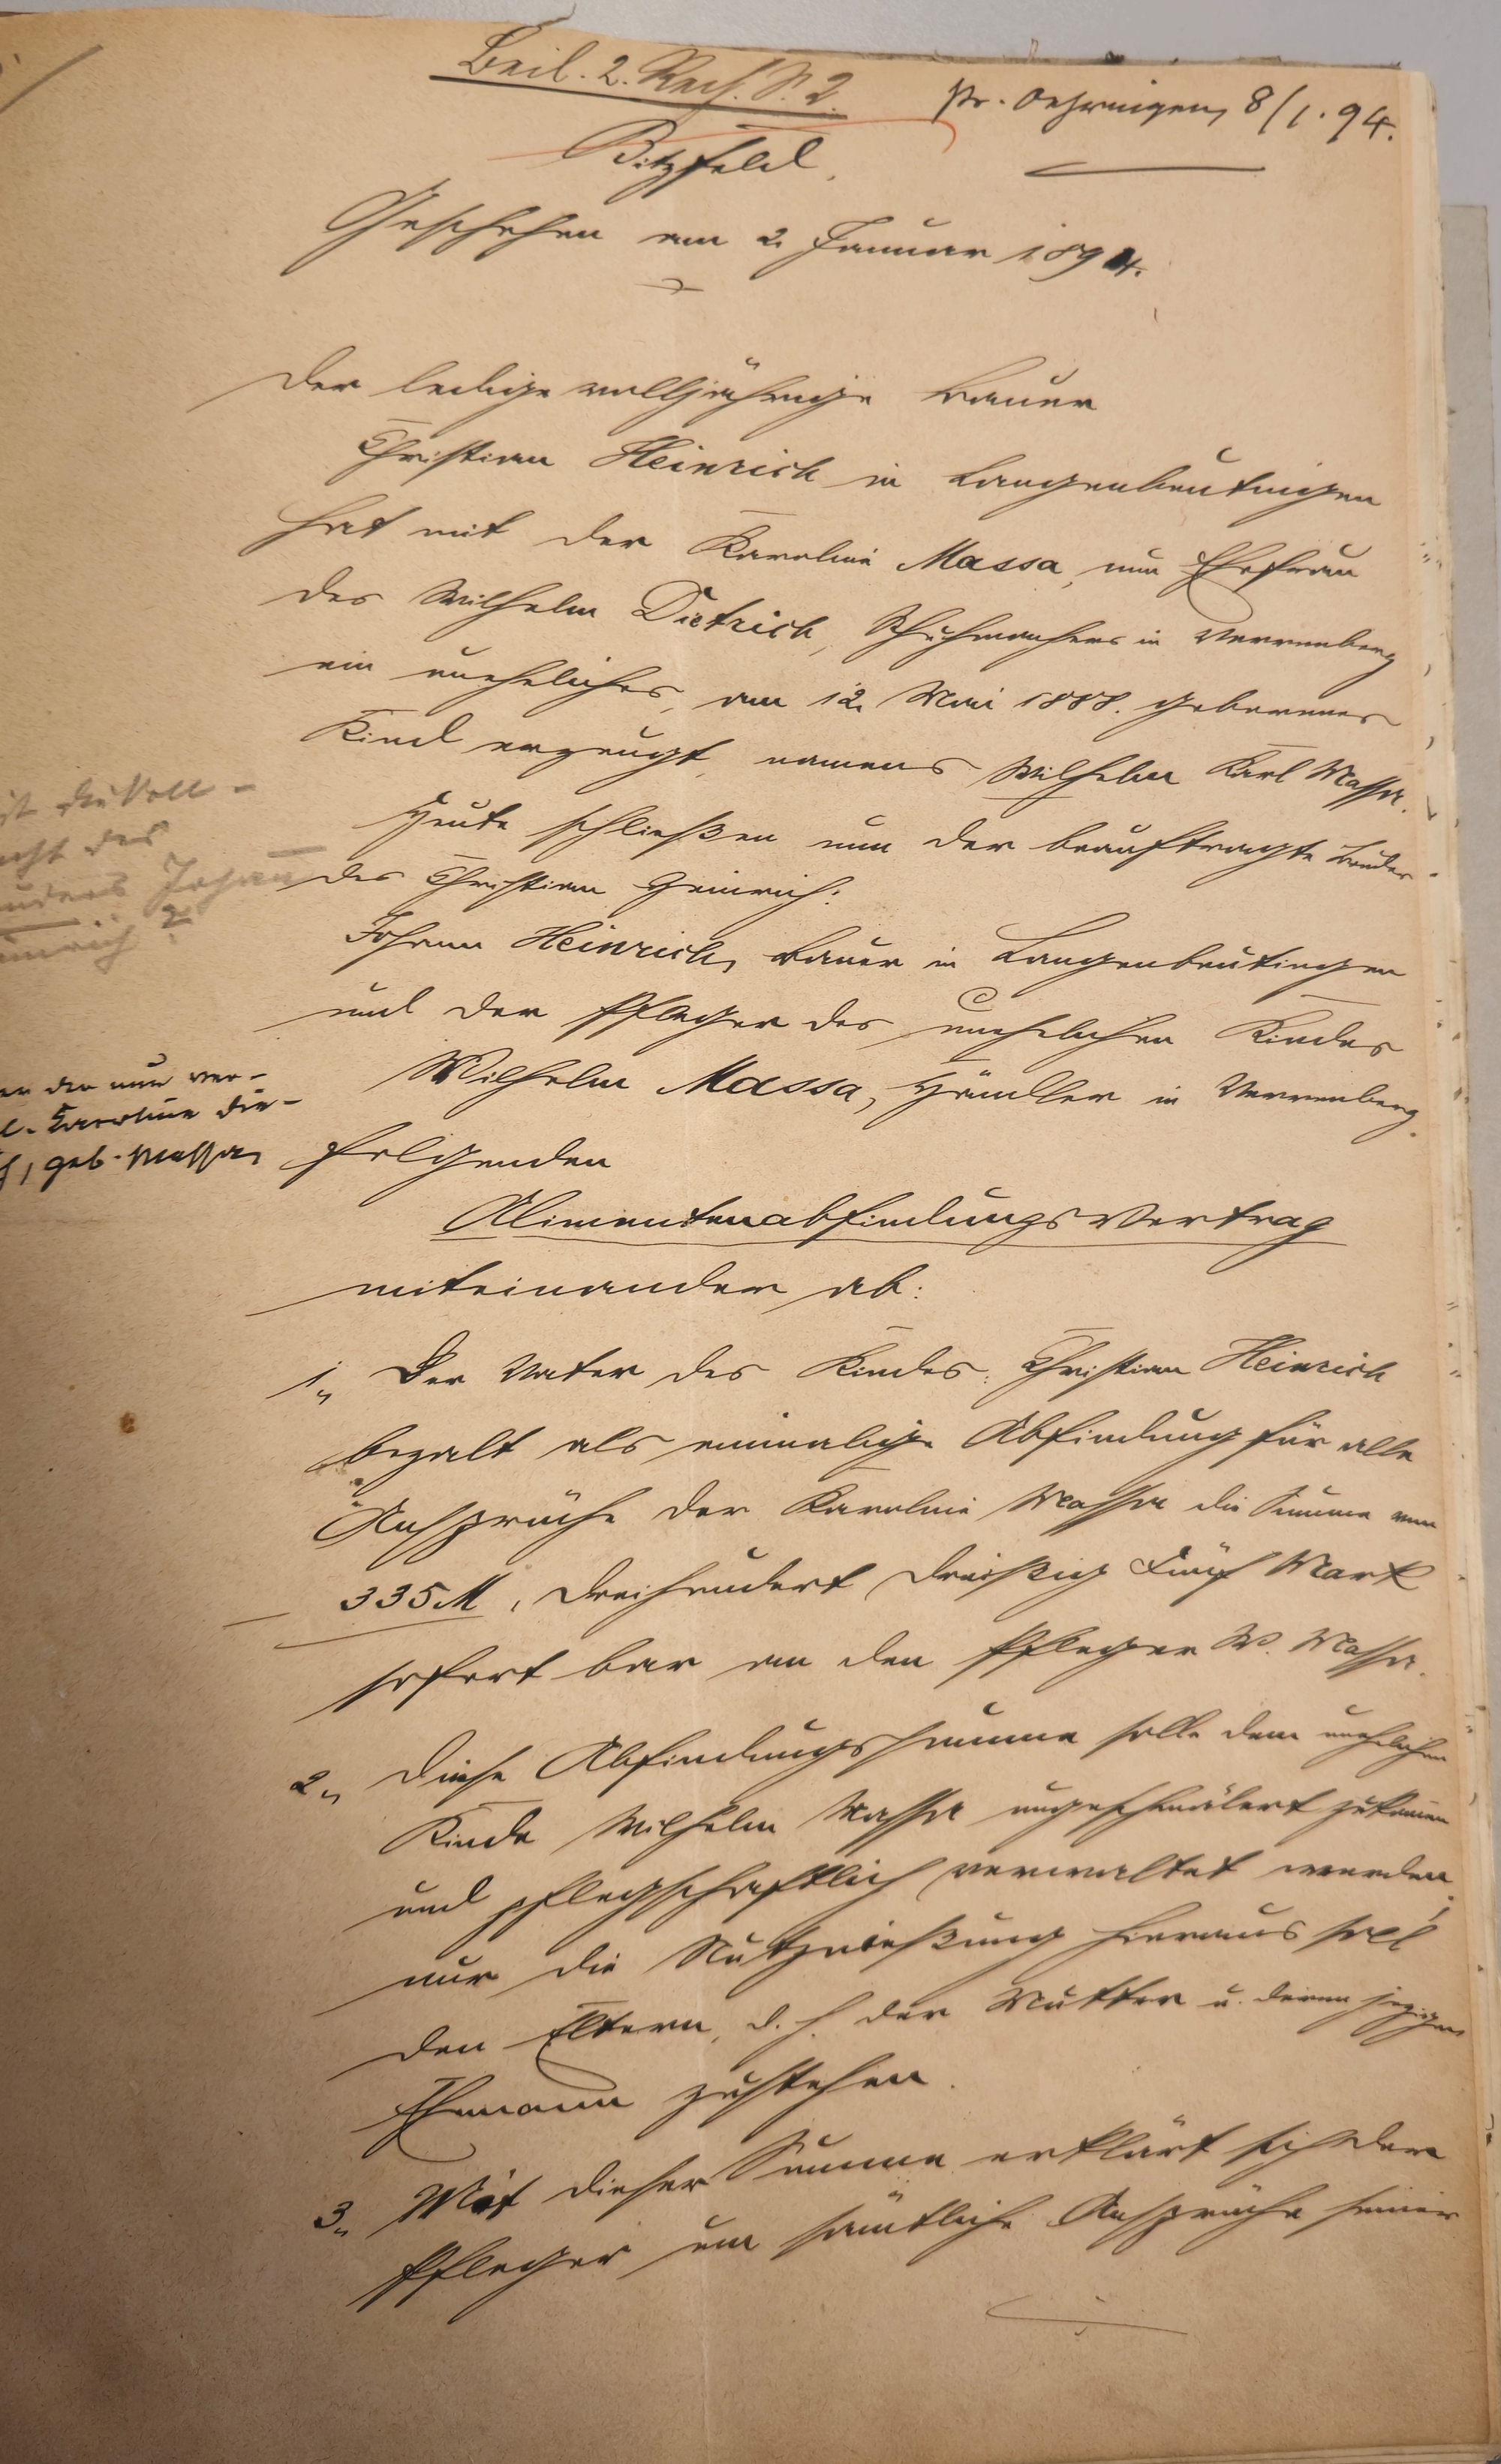 Beil. 2. Rech. S. 2.
pr. Oehringen, 8/1.94.
Bitzfeld.
Geschehen am 2. Januar 1894.
Der ledige volljährige Bauer
Christian Heinrich in Langenbeutingen
hat mit der Karoline Massa, nun Ehefrau
des Wilhelm Dietrich, Schuhmachers in Verrenberg
ein uneheliches, am 12. Mai 1888. geborenes
Kind erzeugt, namens Wilhelm Karl Massa.
Heute schließen nun der beauftragte Bruder
des Christian Heinrich:
Johann Heinrich, Bauer in Langenbeutingen
und der Pfleger des unehelichen Kindes
Wilhelm Massa, Händler in Verrenberg
folgenden
Alimentenabfindungsvertrag
miteinander ab:
1., Der Vater des Kindes: Christian Heinrich
bezalt als einmalige Abfindung für alle
Ansprüche der Karoline Massa die Summe von
335 M, dreihundert dreißig fünf Mark
sofort bar an den Pfleger W. Massa.
2., Diese Abfindungssumme solle dem unehelichen
Kinde Wilhelm Massa ungeschmälert zukommen
und pflegschaftlich verwaltet werden,
nur die Nutznießung hieraus soll
den Eltern, d. h. der Mutter u. deren jezigen
Ehemann zustehen.
3., Mit dieser Summe erklärt sich der
Pfleger um sämtliche Ansprüche seines
ist die Voll-
des
Johann
?
der nun ver-
Karoline Die-
, geb. Massa,